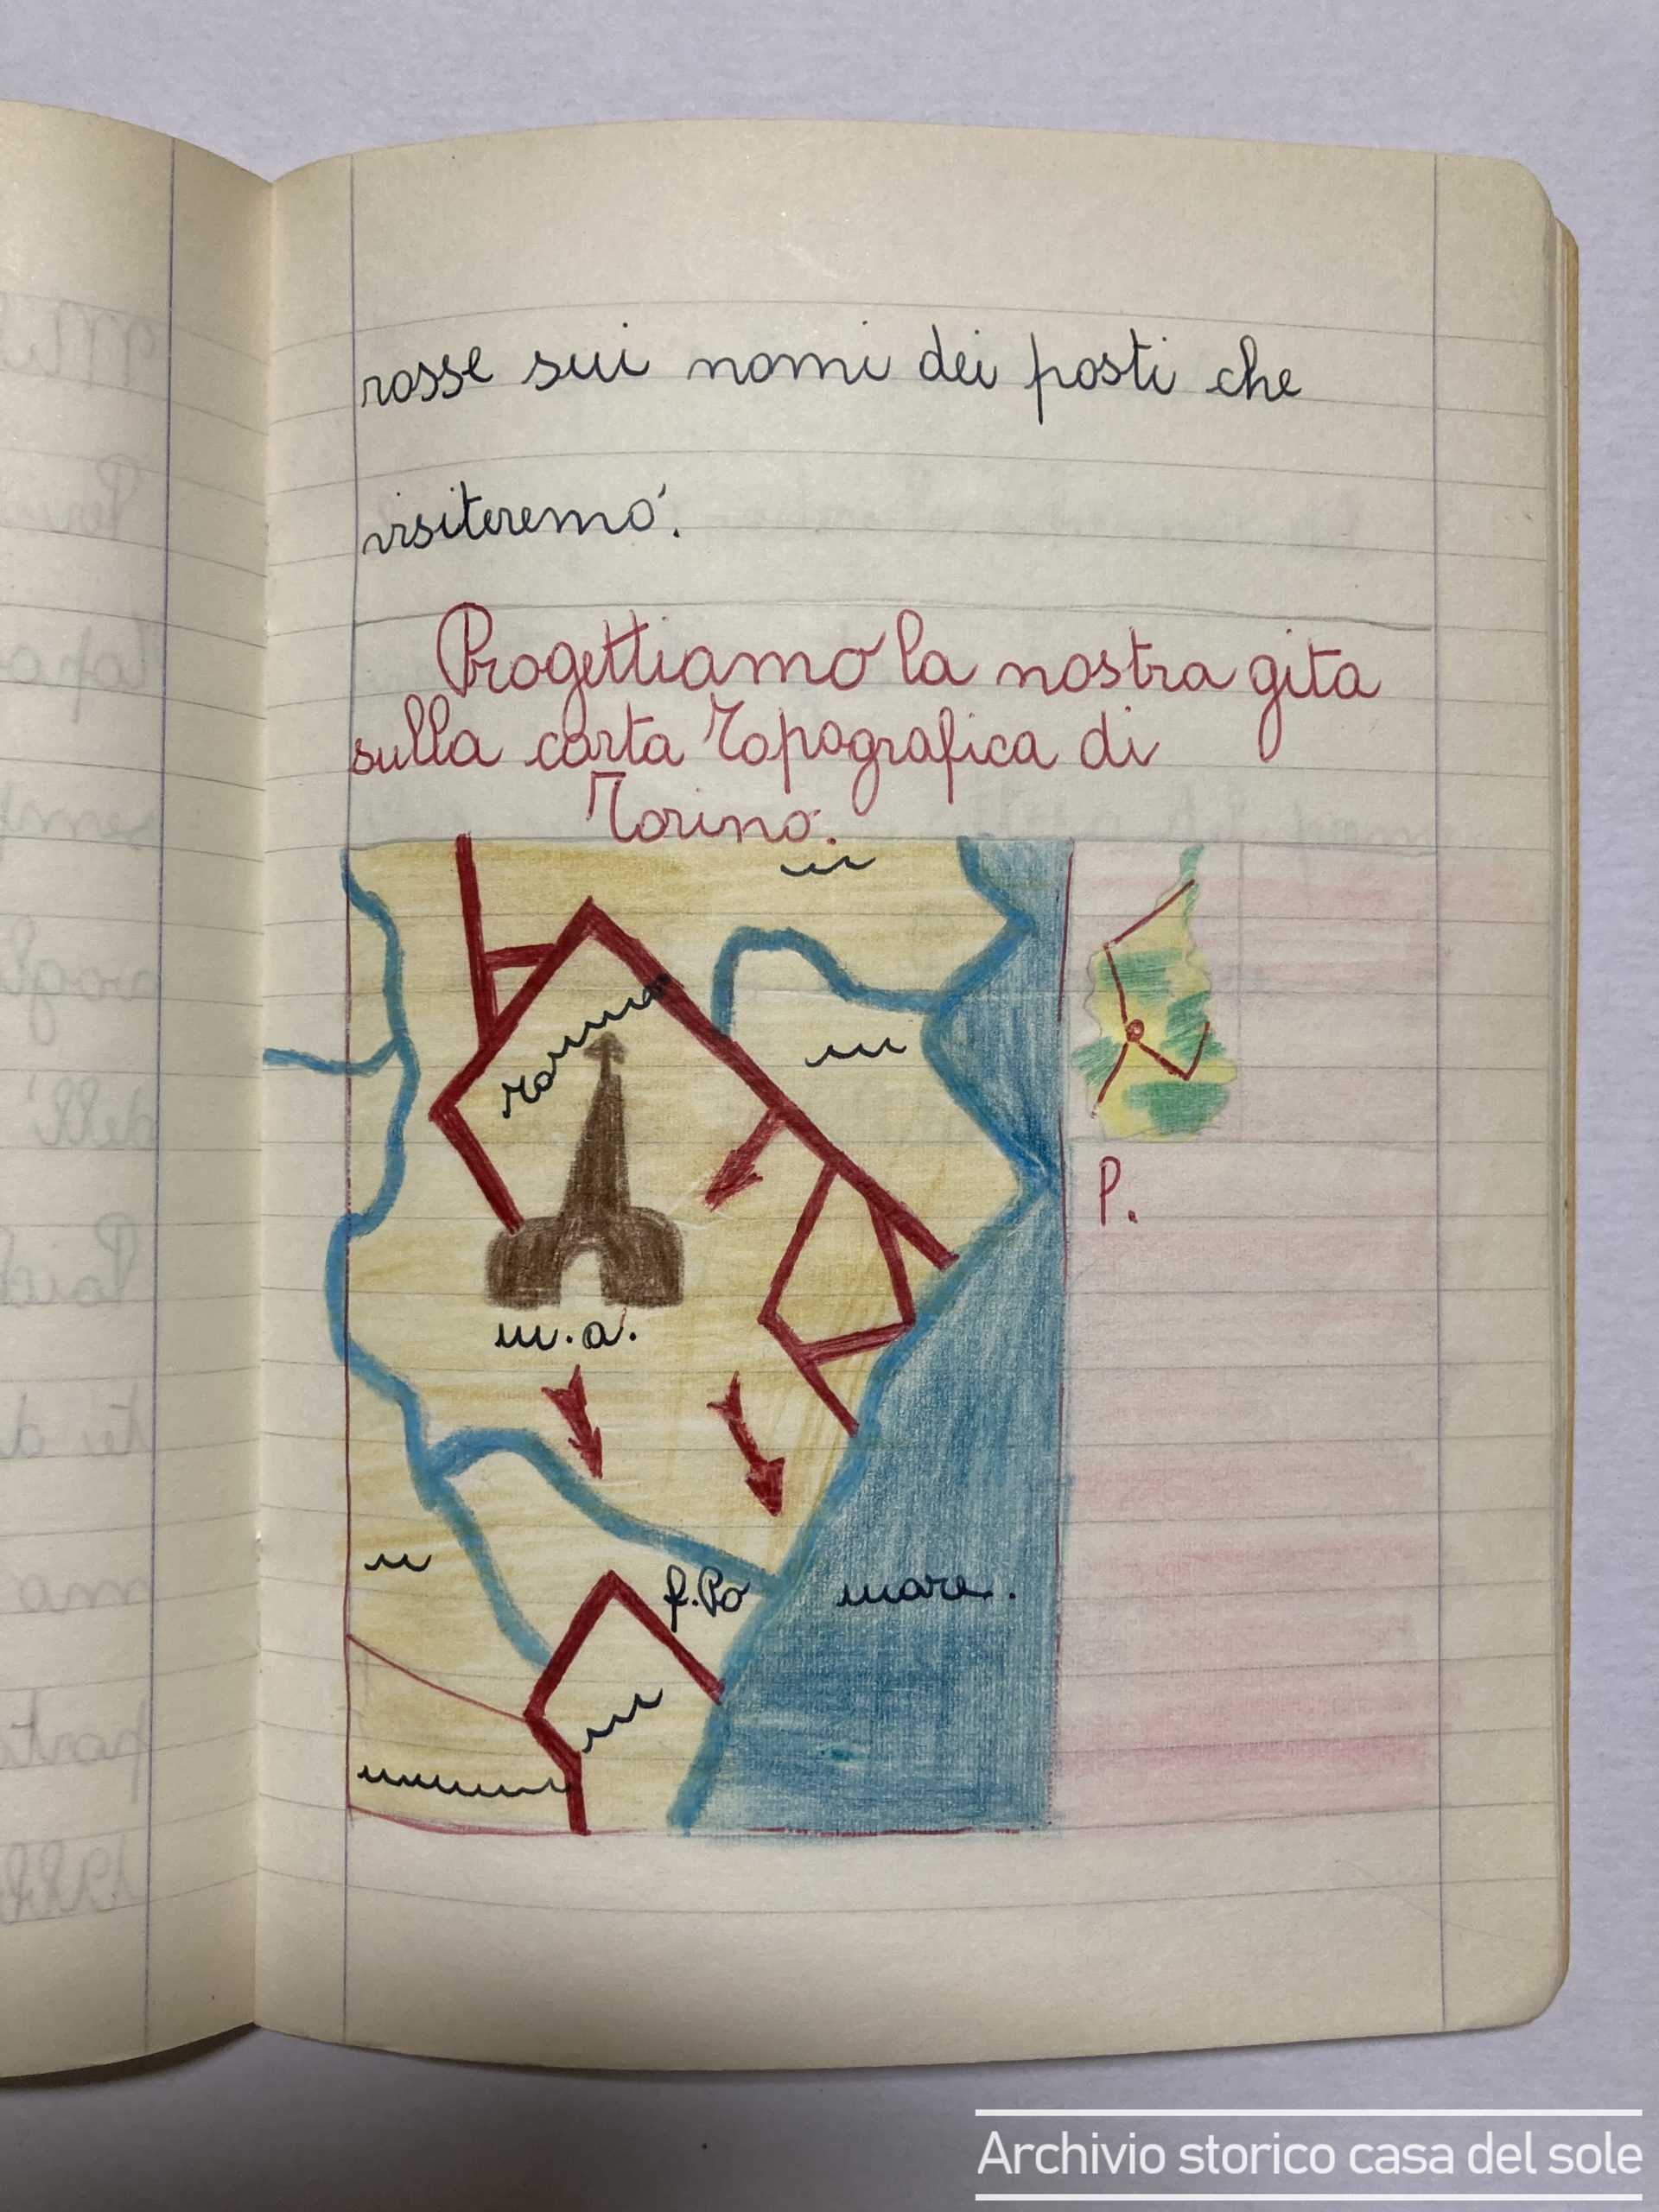 rosse sui nomi dei posti che
visiteremo.
Progettiamo la nostra gita
sulla carta topografica di
Torino.
m.a.
P.
f. Po
mare.
Archivio storico casa del sole